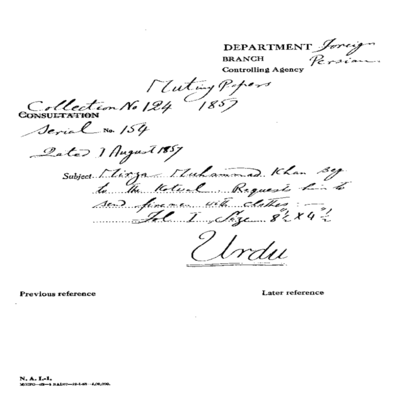 DEPARTMENT Foreign
BRANCH Persian
Controlling Agency
Mutiny Papers
Collection No 124 1857
CONSULTATION
Serial No. 154
Dated 1 August 1857
Subject Mirza Muhammad Khan Beg
to the Kotwal. Requests him to
send firemen with clothes: —
Fol I Size 8½ x 4½
Urdu
Previous reference Later reference
N. A. I.-1.